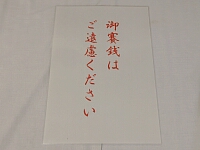 御賽銭は
ご遠慮ください